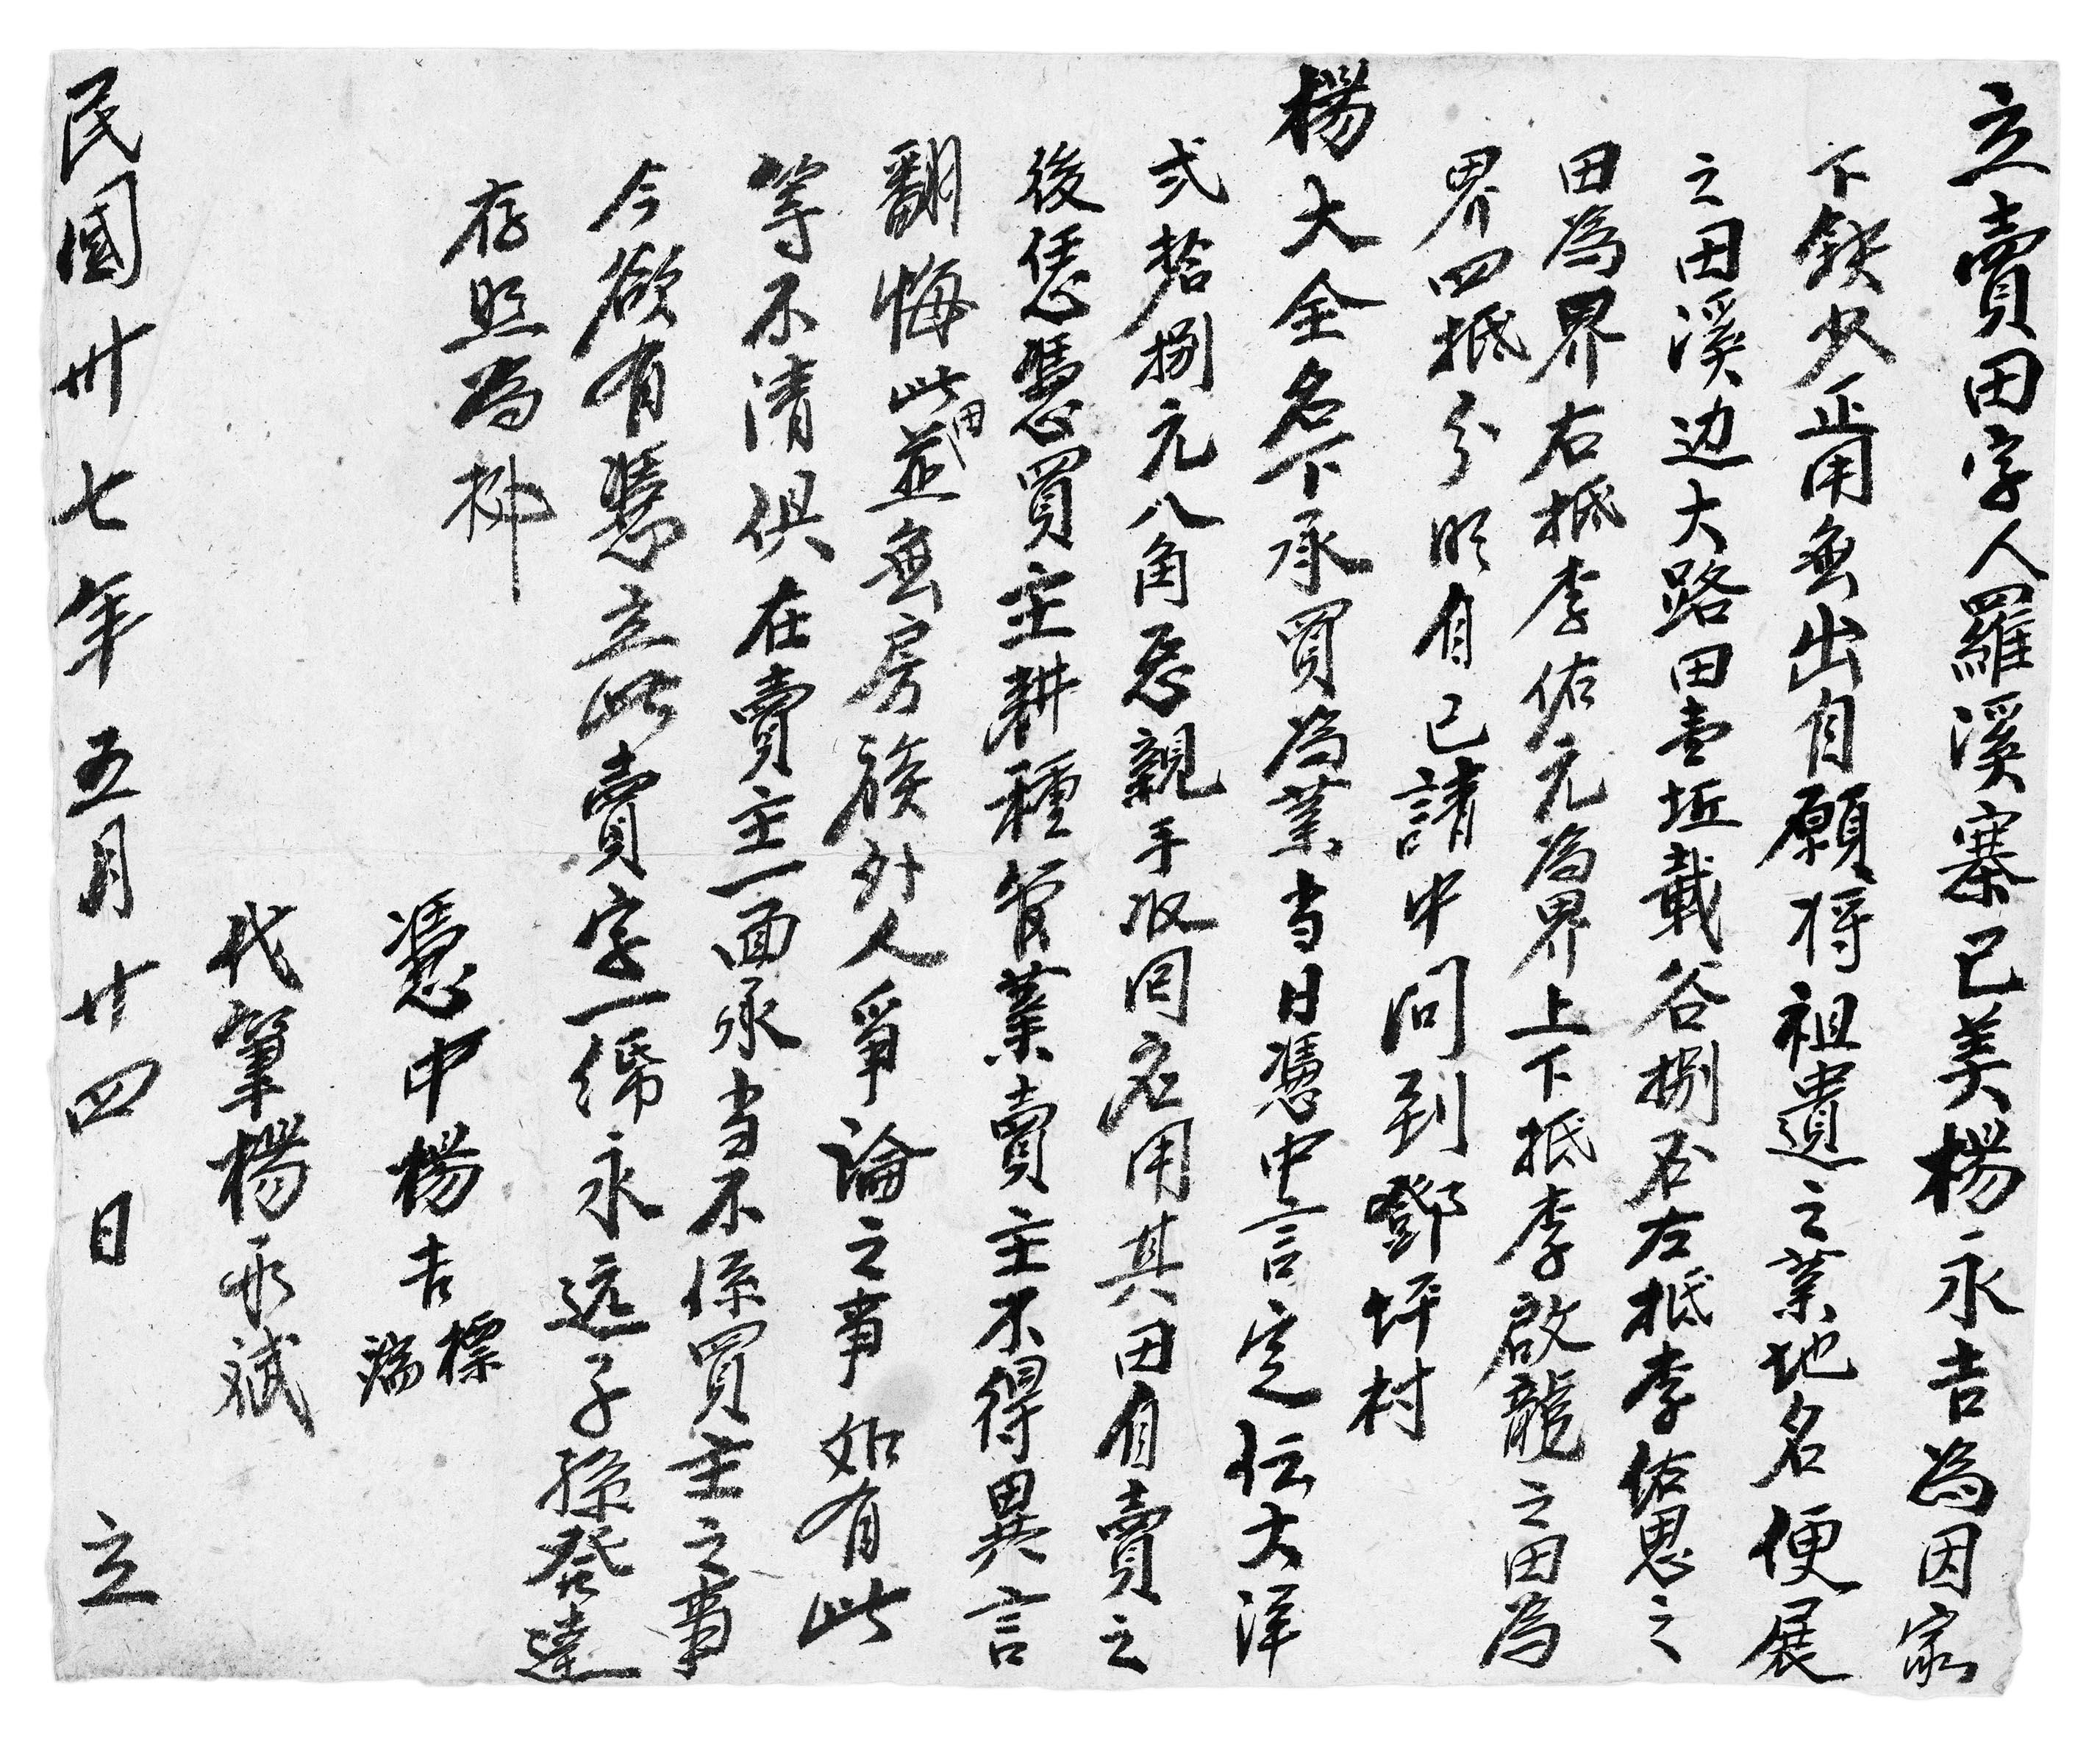 立賣田字人羅溪寨己美楊永吉為因家
下缺少正用無出自願将祖遺之業地名便展
之田溪边大路田壹坵載谷捌石左抵李佑恩之
田為界右抵李佑元為界上下抵李啟龍之田為
界四抵分明自己請中问到鄧坪村
楊大全名下承買為業当日憑中言定大洋
弍拾捌元八角恁親手收囬应用其田自賣之
後恁憑買主耕種管業賣主不得異言
翻悔此田並無房族外人爭論之事如有此
等不清俱在賣主一面承当不係買主之事
今欲有憑立此賣字一帋永遠子孫發達
存照為
憑中楊吉標
瑞
代筆楊永斌
民國卅七年五月廿四日 立